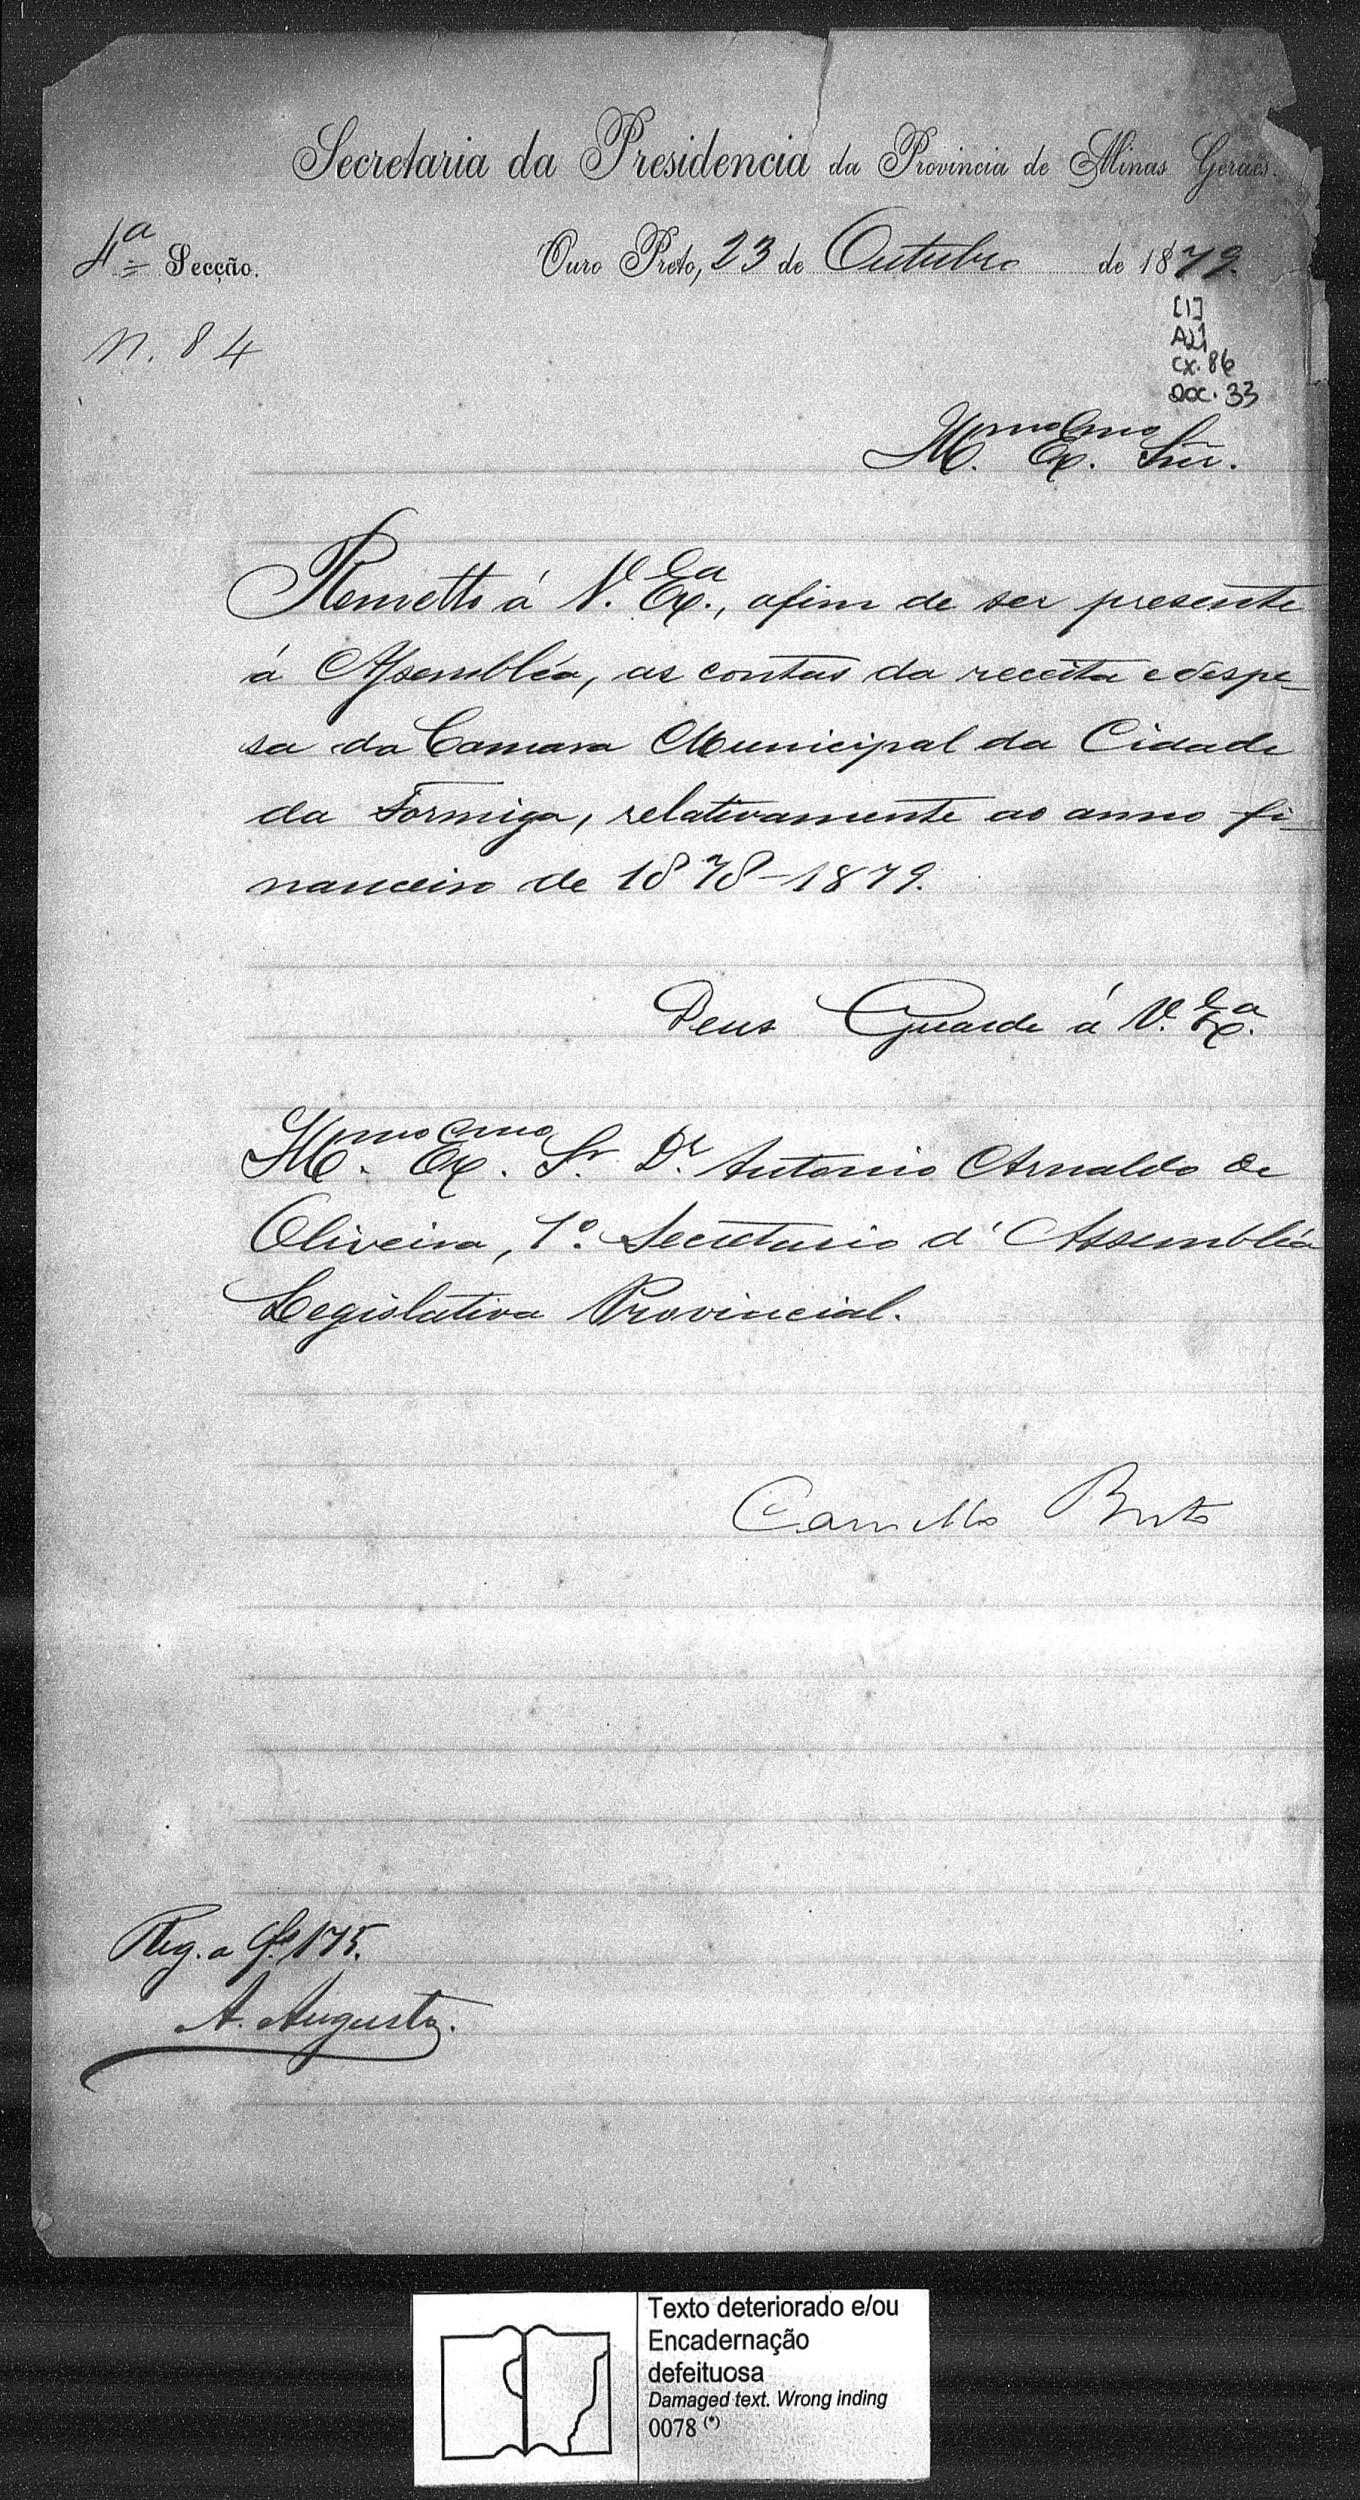 Secretaria da Presidencia da Provincia de Minas Geraes.
4ª Secção.
Ouro Preto, 23 de Outubro de 1879.
N. 84
[1]
A21
cx. 86
DOC. 33
Ill.mo Ex.mo Snr.
Remetto á V. Ex.cia, afim de ser presente
á Assembléa, as contas da receita e despe-
sa da Camara Municipal da Cidade
da Formiga, relativamente ao anno fi-
nanceiro de 1878-1879.
Deus Guarde á V. Ex.cia
Ill.mo Ex.mo Sr. Dr. Antonio Arnaldo de
Oliveira, 1º. Secretario d'Assembléa
Legislativa Provincial.
Camillo Brito
Reg. a fs 175.
A. Augusto.
Texto deteriorado e/ou
Encadernação
defeituosa
Damaged text. Wrong inding
0078 (*)